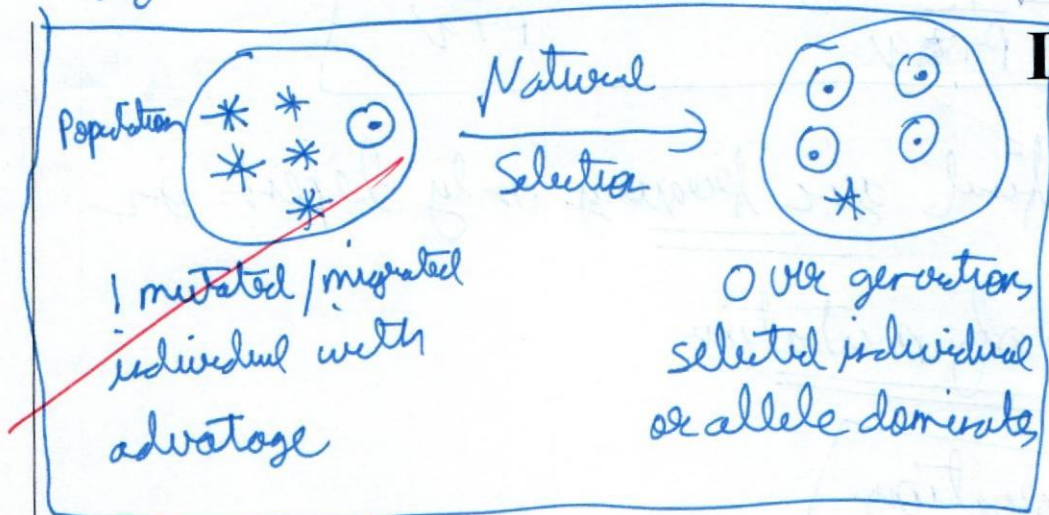 Population
Natural
Selection
1 mutated/migrated
individual with
advatage
Over generations
selected individual
or allele dominates